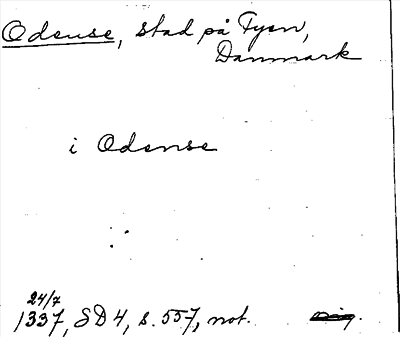 Odense, stad på Fyen,
Danmark
i Odense
24/7
1337, SD 4, s. 557, not. orig.